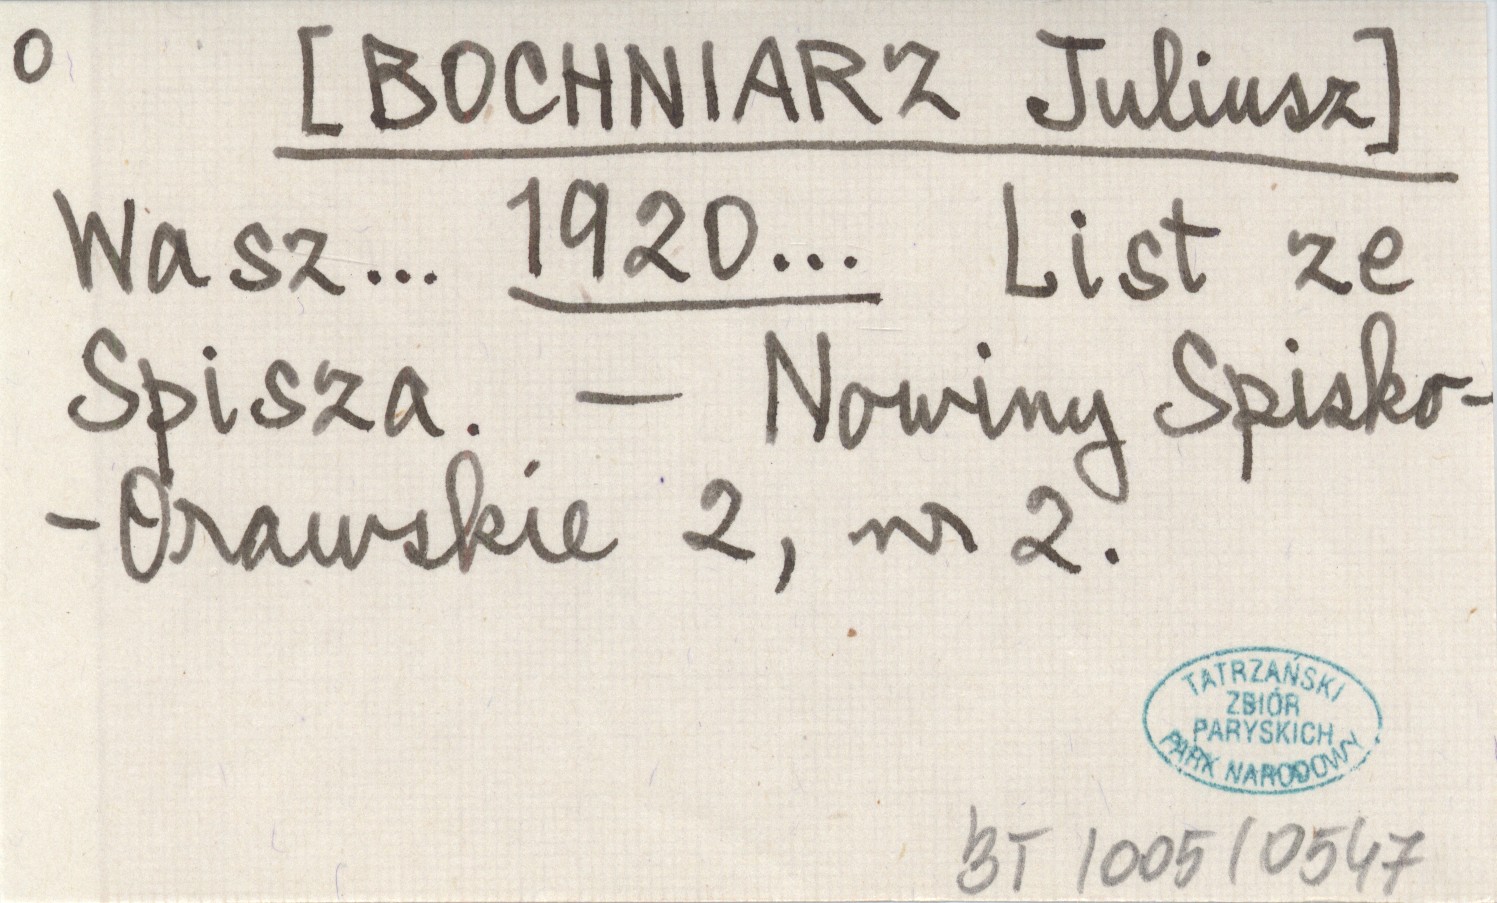 o [BOCHNIARZ Juliusz]
Wasz... 1920... List ze
Spisza. — Nowiny Spisko-
-Orawskie 2, nr 2.
TATRZAŃSKI
ZBIÓR
PARYSKICH
PARK NARODOWY
BT /005/0547